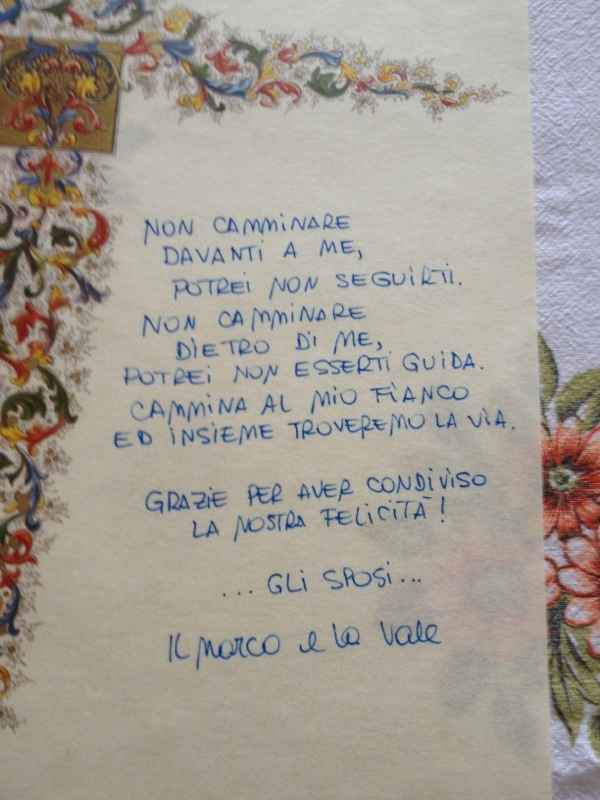 NON CAMMINARE
DAVANTI A ME,
POTREI NON SEGUIRTI.
NON CAMMINARE
DIETRO DI ME,
POTREI NON ESSERTI GUIDA.
CAMMINA AL MIO FIANCO
ED INSIEME TROVEREMO LA VIA.
GRAZIE PER AVER CONDIVISO
LA NOSTRA FELICITÀ!
... GLI SPOSI...
Il Marco e la Vale